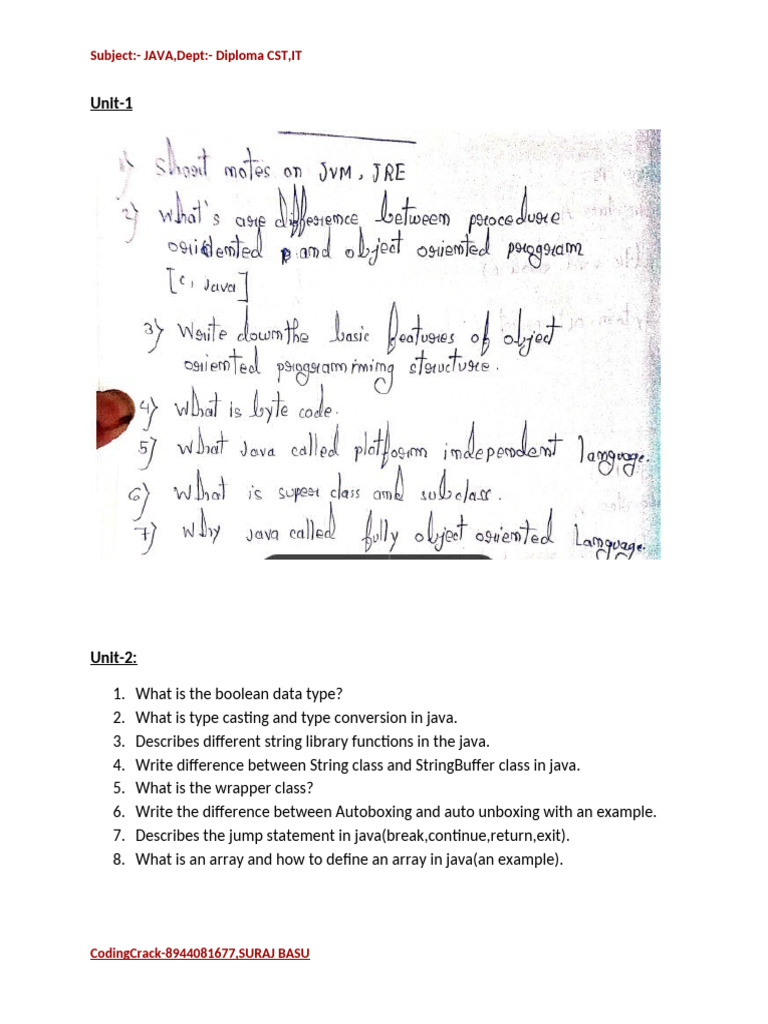 Subject:- JAVA,Dept:- Diploma CST,IT
Unit-1
1) Short notes on JVM, JRE
2) What's are difference between procedure
oriidented p and object oriented program
[C, Java]
3) Write down the basic features of object
oriented programming structure.
4) What is byte code.
5) What Java called platform independent language.
6) What is super class and subclass.
7) Why Java called fully object oriented Language.
Unit-2:
1. What is the boolean data type?
2. What is type casting and type conversion in java.
3. Describes different string library functions in the java.
4. Write difference between String class and StringBuffer class in java.
5. What is the wrapper class?
6. Write the difference between Autoboxing and auto unboxing with an example.
7. Describes the jump statement in java(break,continue,return,exit).
8. What is an array and how to define an array in java(an example).
CodingCrack-8944081677,SURAJ BASU